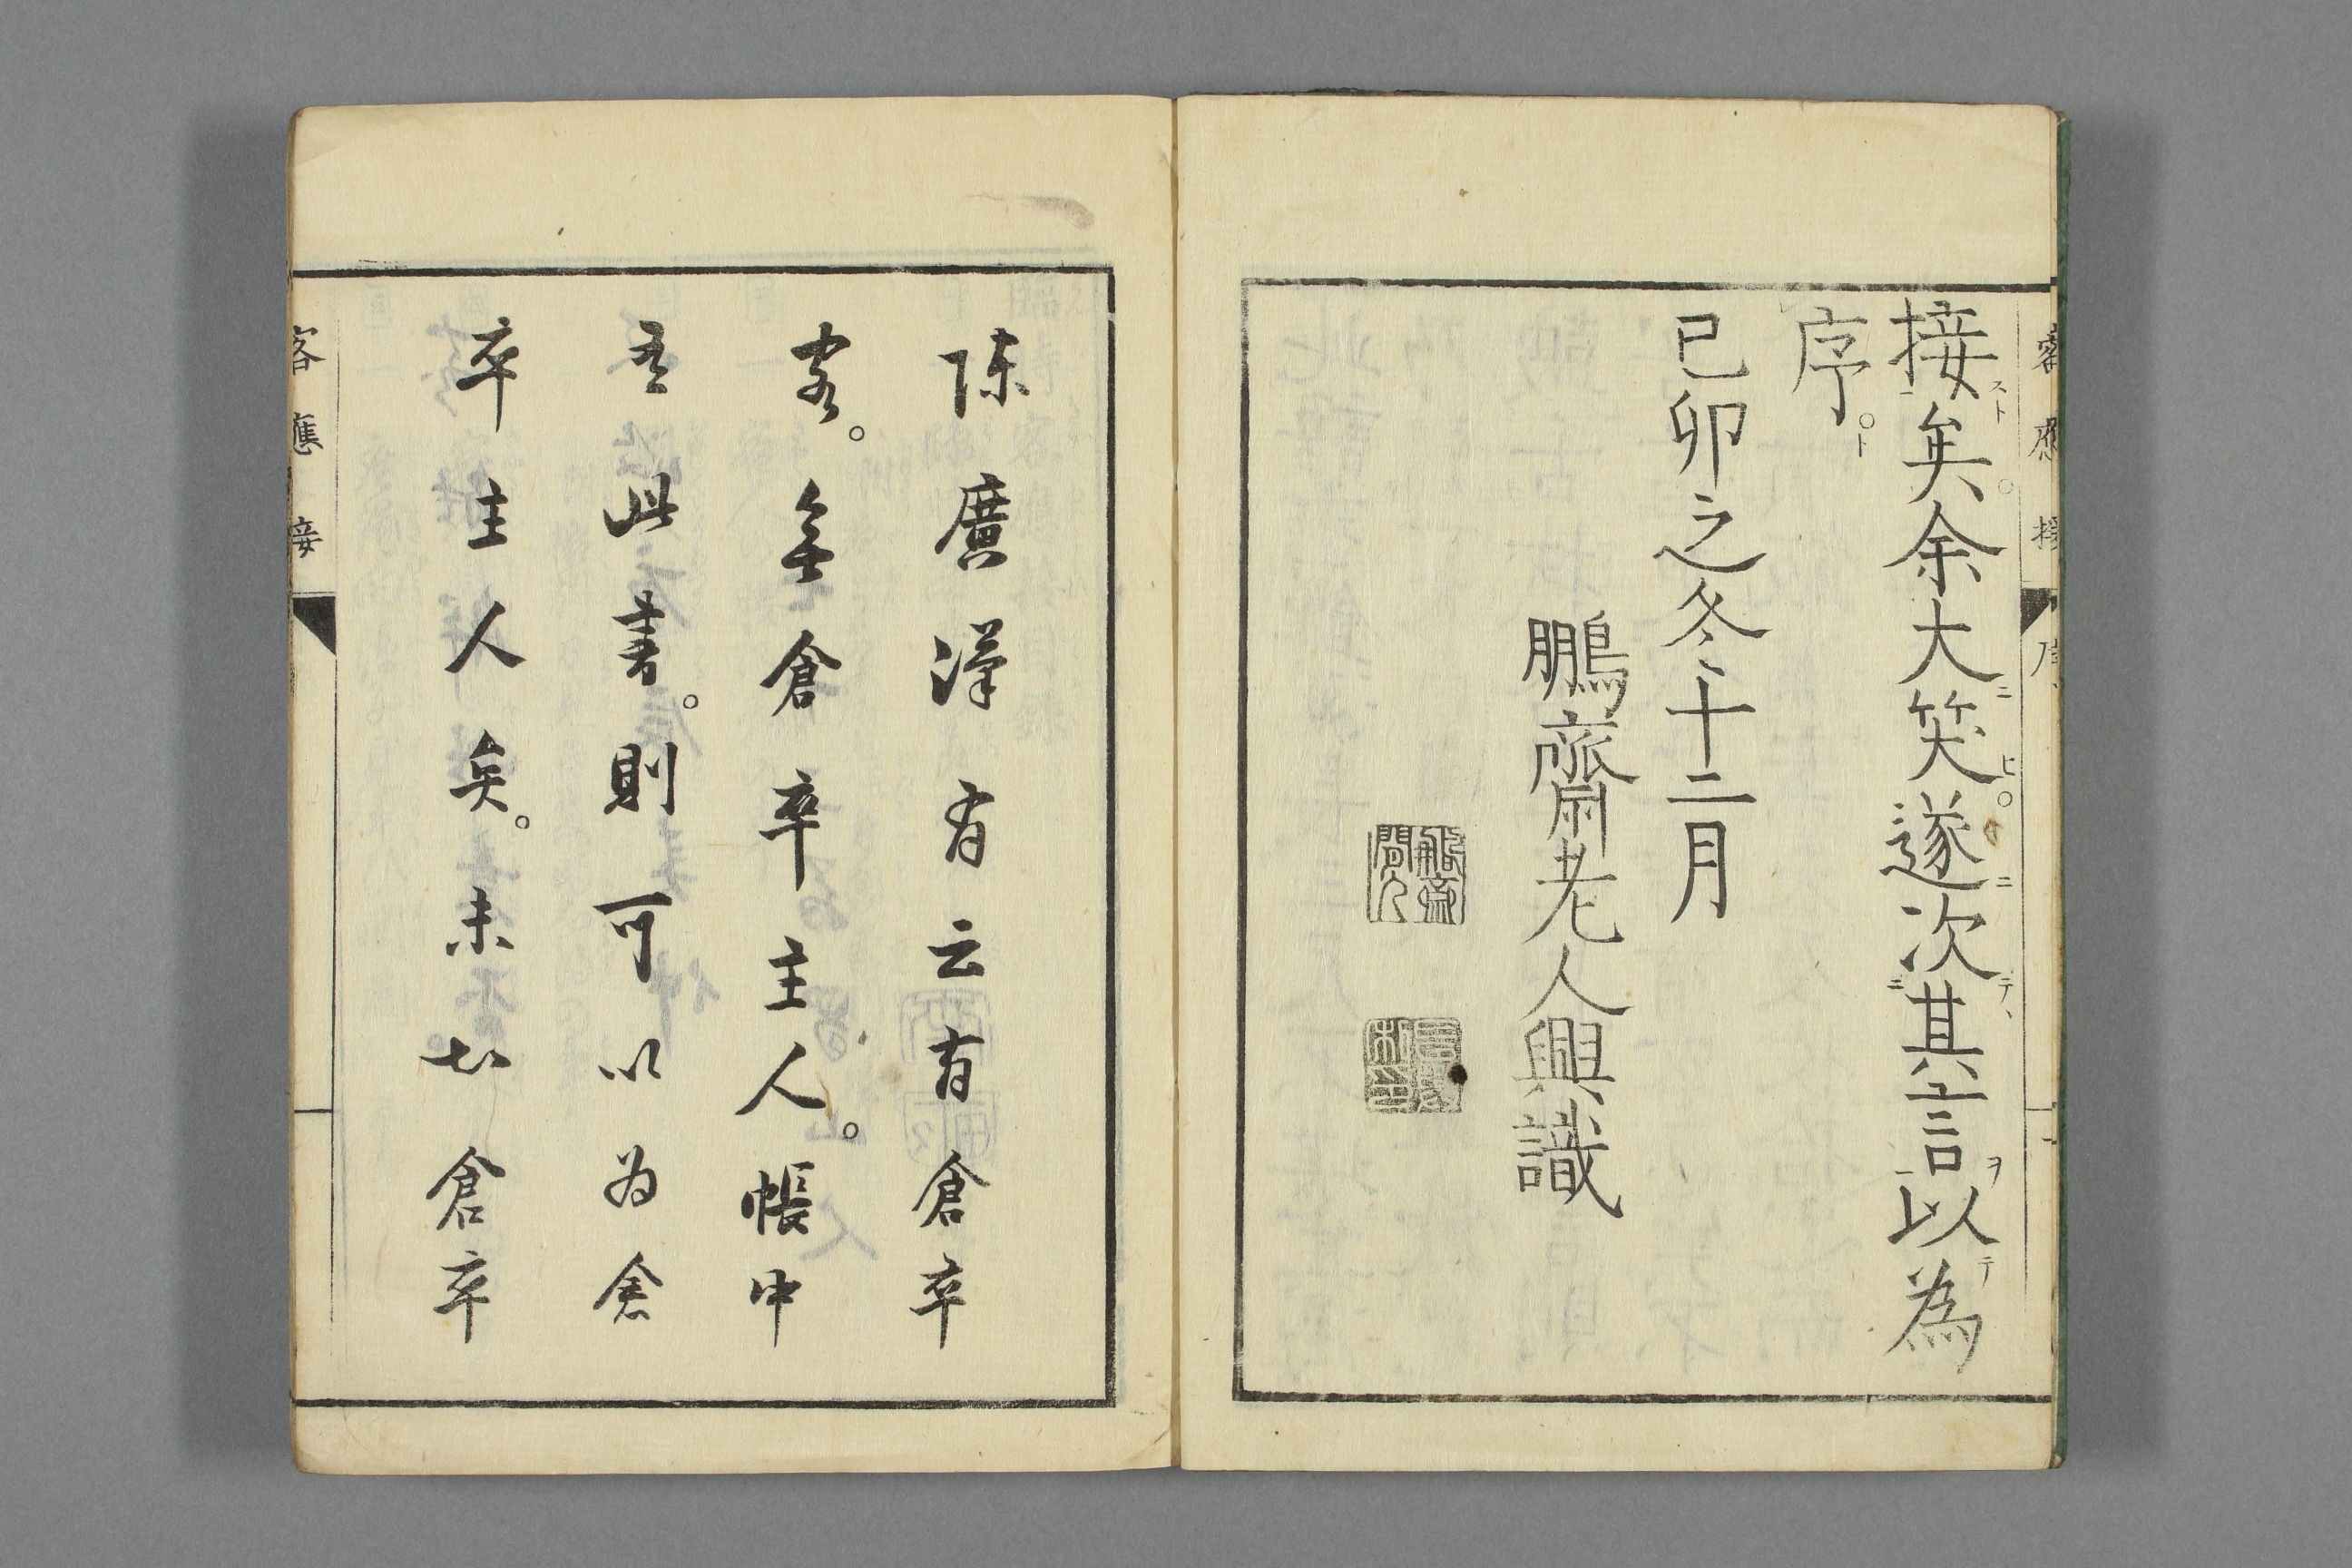 接矣余大笑遂次其言以為
序
已卯之冬十二月
鵬齋老人興識
陳廣漢有云有倉卒
客無倉卒主人帳中
有此書則可以為倉
卒主人矣未知倉卒
客應接